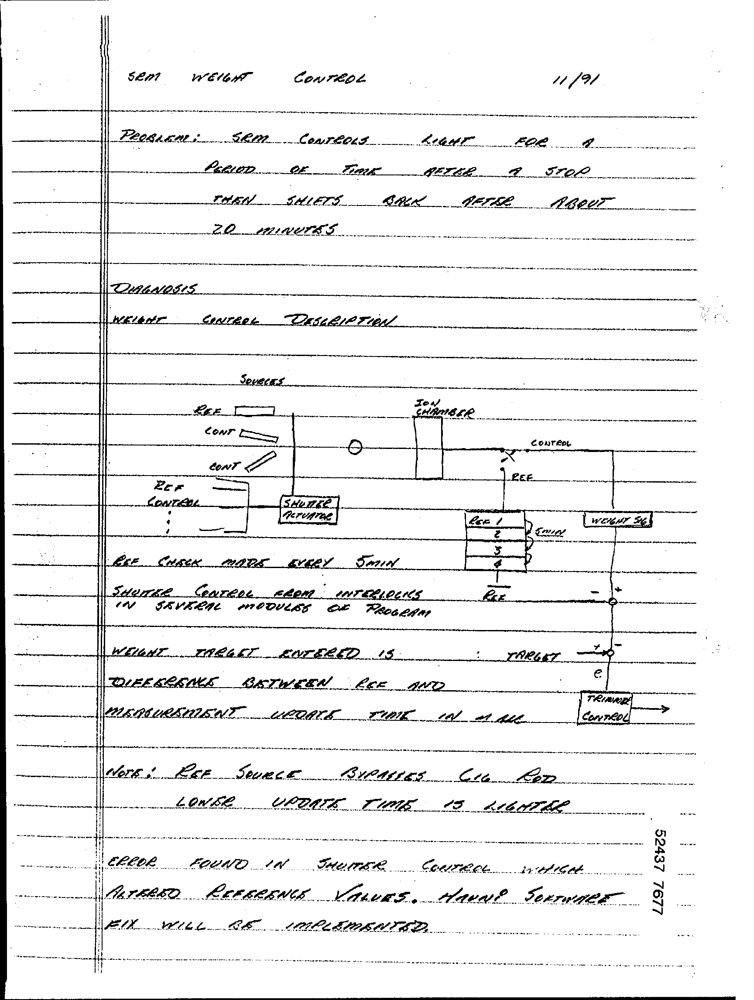 SRM WEIGHT CONTROL 11/91
PROBLEM: SRM CONTROLS LIGHT FOR A
PERIOD OF TIME AFTER A STOP
THEN SHIFTS BACK AFTER ABOUT
20 MINUTES
DIAGNOSIS
WEIGHT CONTROL DESCRIPTION
SOURCES
REF
CONT
CONT
ION
CHAMBER
CONTROL
REF
REF
CONTROL
SHUTTER
ACTUATOR
REF 1
2
3
4
5MIN
WEIGHT SIG
REF
REF CHECK MADE EVERY 5MIN
SHUTTER CONTROL FROM INTERLOCKS
IN SEVERAL MODULES OF PROGRAM
- +
WEIGHT TARGET ENTERED IS : TARGET + -
DIFFERENCE BETWEEN REF AND
e
MEASUREMENT UPDATE TIME IN
CONTROL
NOTE: REF SOURCE BYPASSES CIG ROD
LOWER UPDATE TIME IS LIGHTER
ERROR FOUND IN SHUTTER CONTROL WHICH
ALTERED REFERENCE VALUES. HAUNI SOFTWARE
FIX WILL BE IMPLEMENTED.
52437 7677